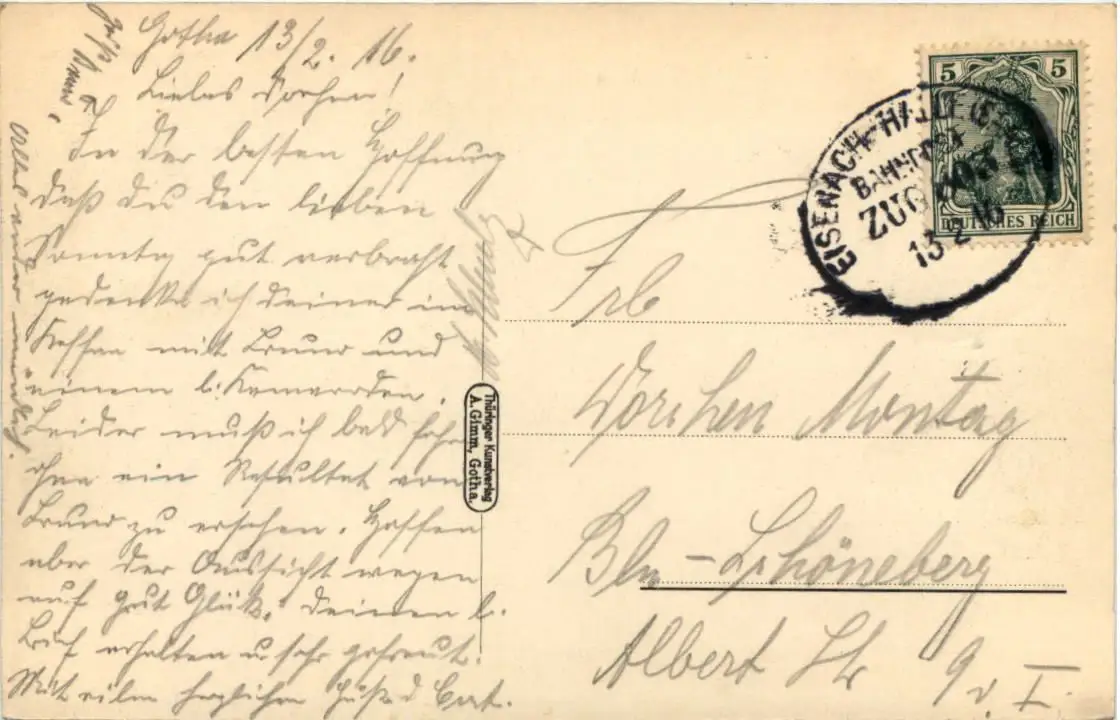 Gotha 13/2. 16.
Liebes Dorchen!
In der besten Hoffnung
daß du den lieben
Sonntag gut verbracht
gedenke ich deiner im
Kaffee mit Bruno und
einem l. Kameraden.
Leider muß ich bald fahren
ohne ein Resultat von
Bruno zu ersehen. Hoffen
aber der Aussicht wegen
auf gut Glück. Deinen l.
Brief erhalten u sehr gefreut.
Mit herzlichen
Alles andere mündlich.
Bruno
Frl
Dorchen Montag
Bln-Schöneberg
Albert Str 9 v. I.
5 5
DEUTSCHES REICH
EISENACH-HALLE
BAHNPOST
ZUG
13 2 16
Thüringer Kunstverlag
A. Gimm, Gotha.